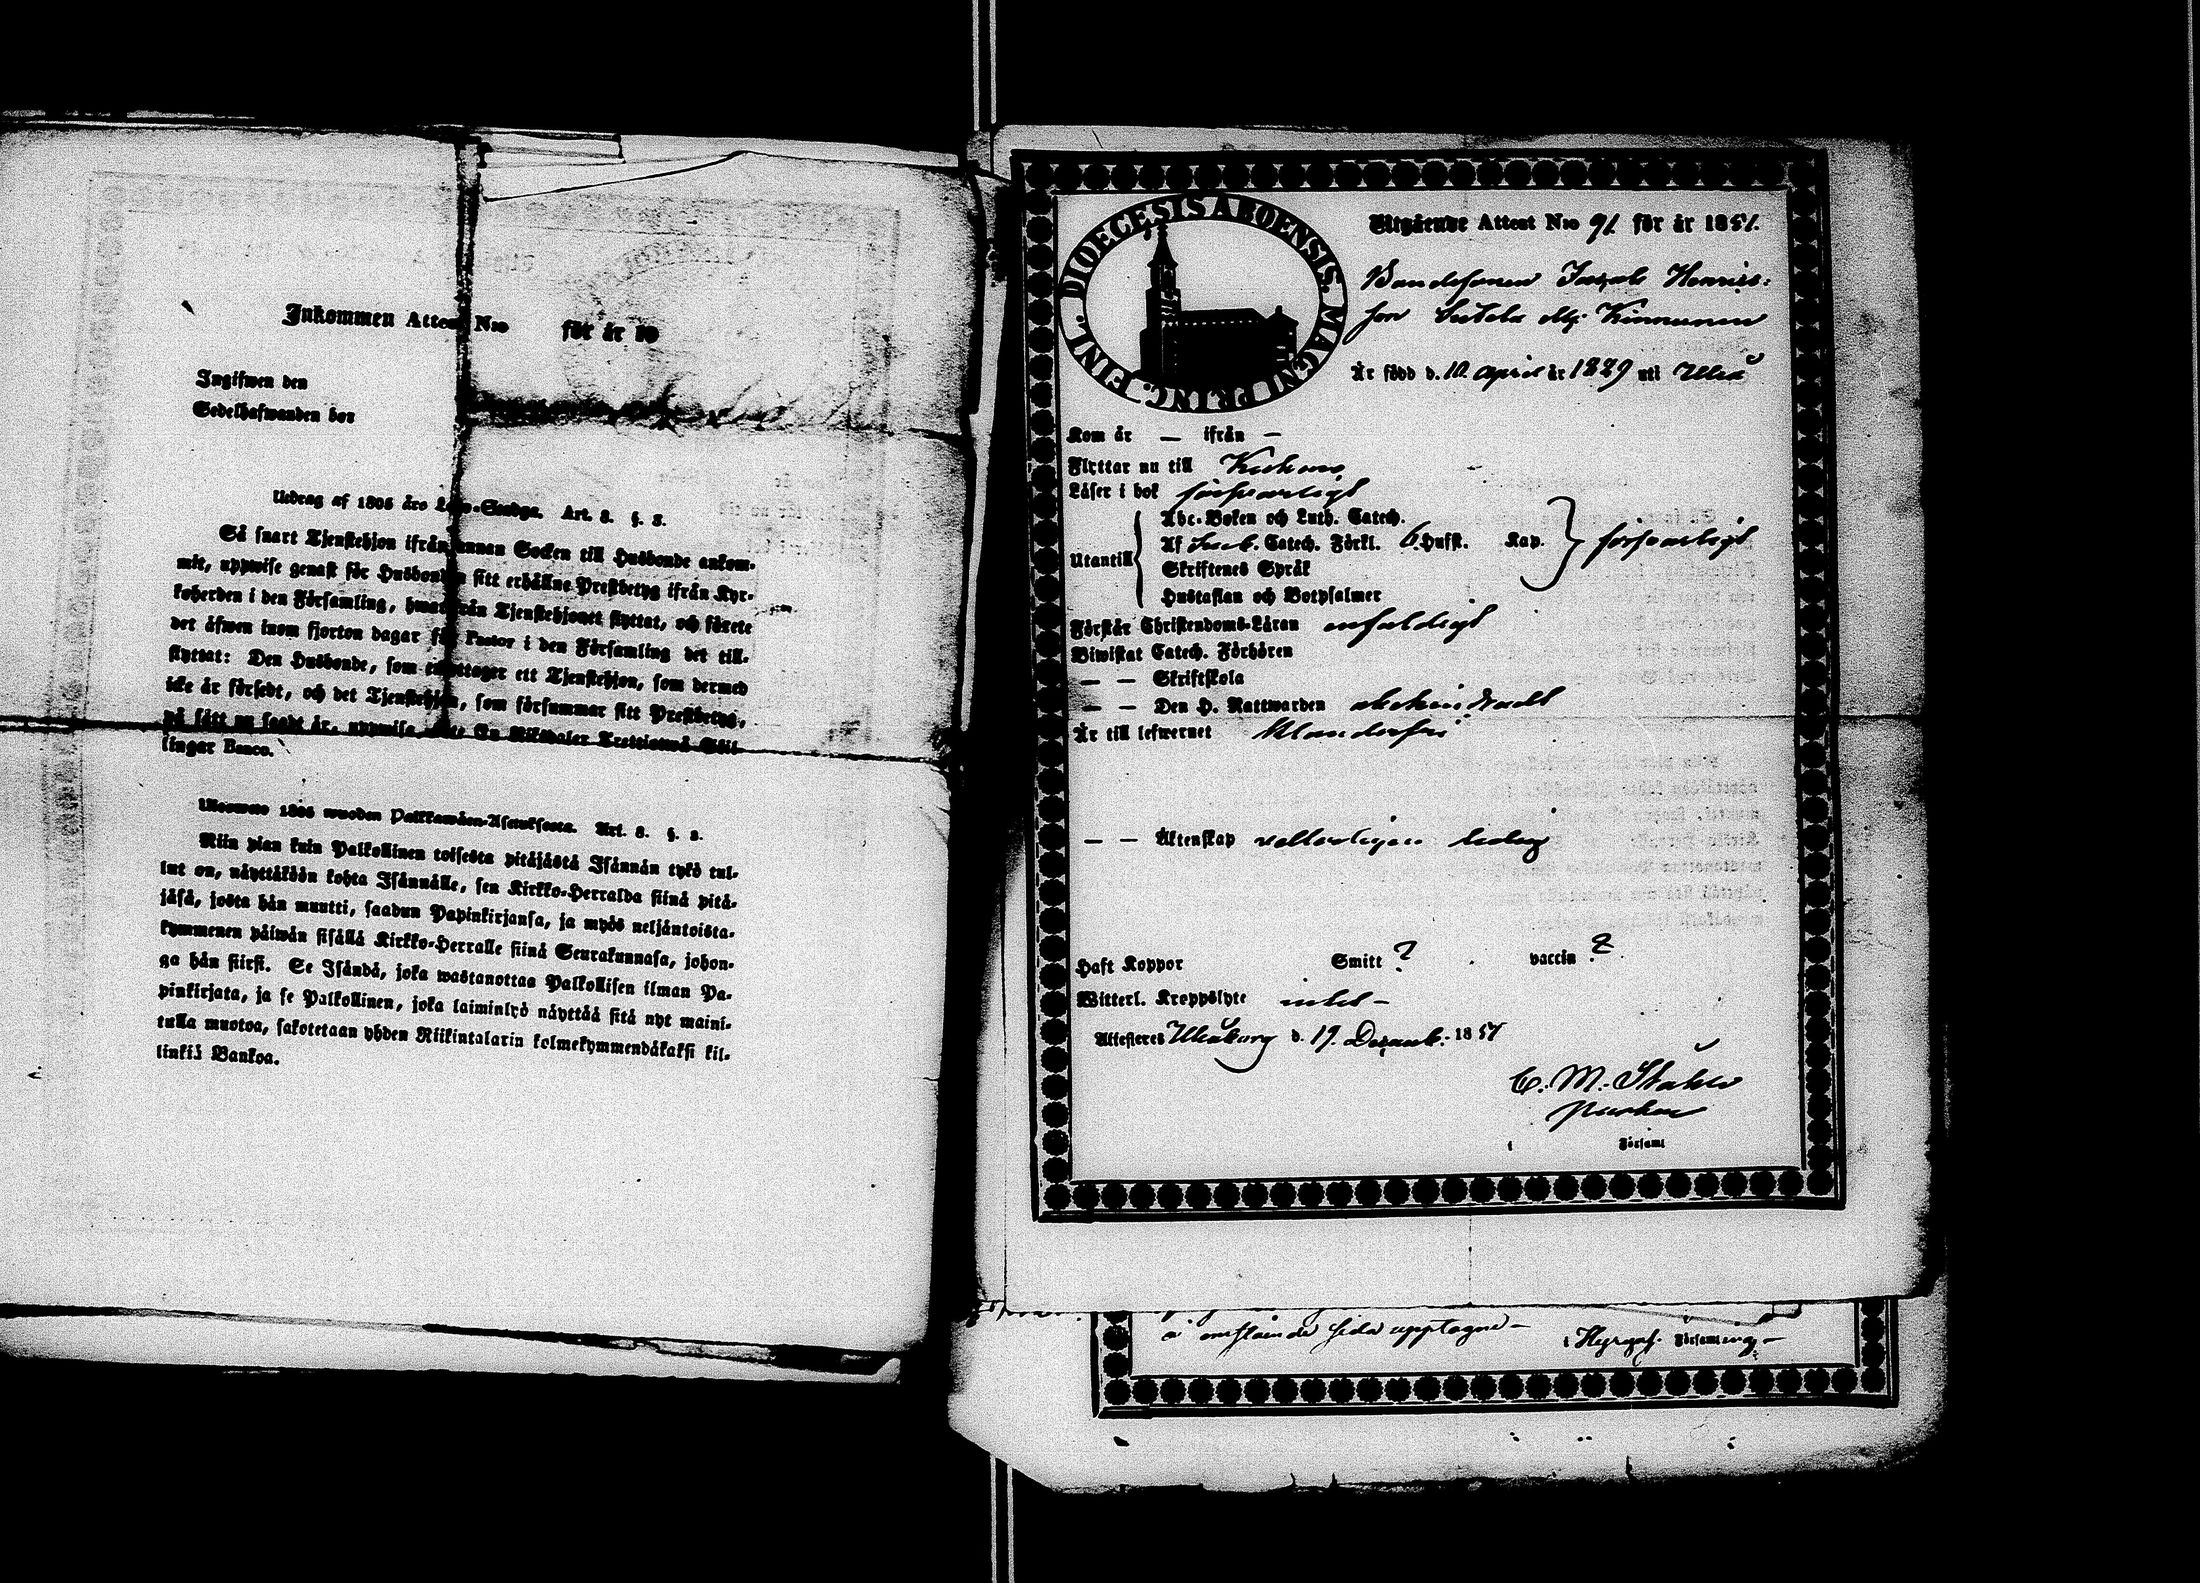 Inkommen Attest N:ro för år 18
Ingifwen den
Sedelhafwanden bor
Utdrag af 1805 års Lego-Stadga. Art. 8. §. 8.
Så snart Tjenstehjon ifrån annan Socken till Husbonde ankom-
mit, uppwise genast för Husbonden sitt erhållna Prestbetyg ifrån Kyr-
koherden i den Församling, hwarifrån Tjenstehjonet flyttat, och förete
det äfwen inom fjorton dagar för Pastor i den Församling det till-
flyttat: Den Husbonde, som emottager ett Tjenstehjon, som dermed
icke är försedt, och det Tjenstehjon, som försummar sitt Prestbetyg,
på sätt nu sagdt är, uppwisa, böte En Riksdaler Trettiotwå Skil-
lingar Banco.
Ulosweto 1805 wuoden Palkkawäen-Asetuksesta. Art. 8. §. 8.
Niin pian kuin Palkollinen toisesta pitäjästä Isännän tykö tul-
lut on, näyttäköön kohta Isännälle, sen Kirkko-Herralda siinä pitä-
jäsä, josta hän muutti, saadun Papinkirjansa, ja myös neljäntoista-
kymmenen päiwän sisällä Kirkko-Herralle siinä Seurakunnasa, johon-
ga hän siirsi. Se Isändä, joka wastanottaa Palkollisen ilman Pa-
pinkirjata, ja se Palkollinen, joka laiminlyö näyttää sitä nyt maini-
tulla muotoa, sakotetaan yhden Riikintalarin kolmekymmendäkaksi kil-
linkiä Bankoa.
DIOECESIS ABOENSIS. MAGNI PRINC. FINL.
Utgående Attest N:ro 91 för år 1851.
Bondesonen Jacob Henrics-
son
Kinnunen
Är född d. 10 april år 1829 uti Uleå
Kom år — ifrån —
Flyttar nu till
Läser i bok försvarligt
Utantill
Abc-Boken och Luth. Catech.
Af Catech. Förkl. 6 Hufst. Kap. försvarligt
Skriftenes Språk
Hustaflan och Botpsalmer
Förstår Christendoms-Läran enfaldigt
Biwistat Catech. Förhören
— — Skriftskola
— — Den H. Nattwarden
Är till lefwernet klanderfri
— — Äktenskap ledig
Haft Koppor Smitt ? vaccin ?
Witterl. Kroppslyte intet -
Attesteras Uleåborg d. 19. Decemb. 1851
C. M. Ståhle
i Församl
å omstående sida upptagne -
i Församling -